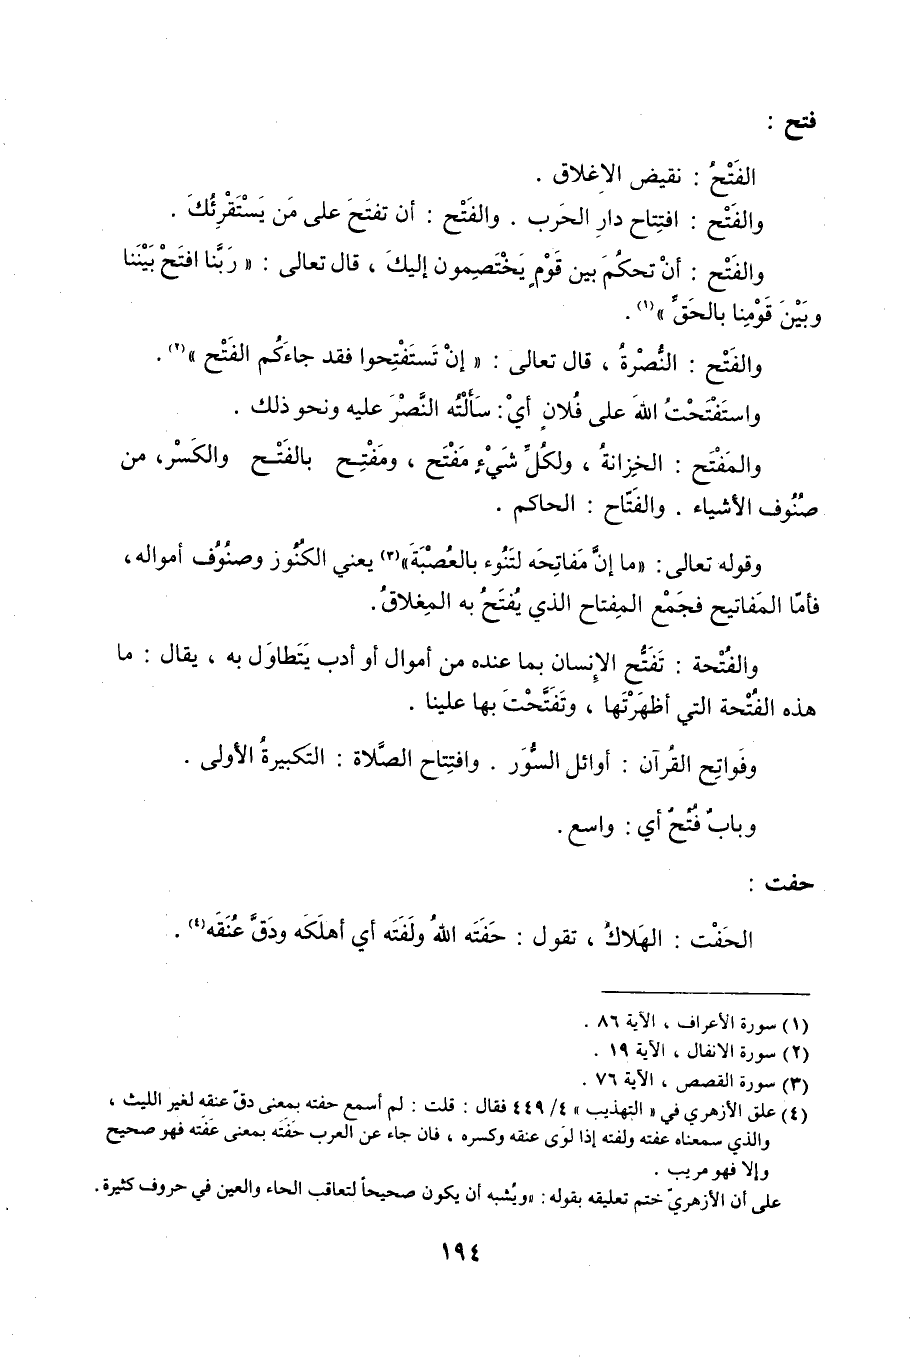 فتح :
الفَتْحُ : نقيض الإغلاق .
والفَتْح : افتِتاح دارِ الحَرب . والفَتْح : أن تفتَحَ على مَن يَسْتَقْرِئُكَ .
والفَتْح : أنْ تحكُمَ بين قَوْمٍ يَخْتَصِمون إليكَ ، قال تعالى : « رَبَّنا افتَحْ بَيْنَنا
وبَيْنَ قَوْمِنا بالحَقِّ »(١) .
والفَتْح : النُّصْرةُ ، قال تعالى : « إنْ تَستَفْتِحوا فقد جاءَكُم الفَتْح »(٢) .
واستَفْتَحْتُ اللهَ على فُلانٍ أيْ: سَأَلْتُه النَّصْرَ عليه ونحو ذلك .
والمَفْتَح : الخِزانةُ ، ولكُلِّ شَيْءٍ مَفْتَح ، ومَفْتِح بالفَتْح والكَسْر، من
صُنُوف الأشياء . والفَتّاح : الحاكم .
وقوله تعالى: «ما إنَّ مَفاتِحَه لتَنُوء بالعُصْبَةَ»(٣) يعني الكُنُوز وصنُوُف أمواله،
فأمّا المَفاتيح فجَمْع المِفتاح الذي يُفتَحُ به المِغلاقُ.
والفُتْحة : تَفَتُّح الإِنسان بما عنده من أموال أو أدب يَتَطاوَل به ، يقال : ما
هذه الفُتْحة التي أظهَرْتَها ، وتَفَتَّحْتَ بها علينا .
وفَواتِح القُرآن : أوائل السُّوَر . وافتِتاح الصَّلاة : التَكبيرةُ الأولى .
وبابٌ فُتُحٌ أي : واسع .
حفت :
الحَفْت : الهَلاكُ ، تقول : حَفَتَه اللهُ ولَفَتَه أي أهلَكَه ودَقَّ عُنَقَه(٤) .
(١) سورة الأعراف ، الآية ٨٦ .
(٢) سورة الانفال ، الآية ١٩ .
(٣) سورة القصص ، الآية ٧٦ .
(٤) علق الأزهري في « التهذيب » ٤/ ٤٤٩ فقال : قلت : لم أسمع حفته بمعنى دقّ عنقه لغير الليث ،
والذي سمعناه عفته ولفته إذا لوَى عنقه وكسره ، فان جاء عن العرب حفَتَه بمعنى عفَته فهو صحيح
وإلا فهو مريب .
على أن الأزهريّ ختم تعليقه بقوله: «ويُشبه أن يكون صحيحاً لتعاقب الحاء والعين في حروف كثيرة.
١٩٤